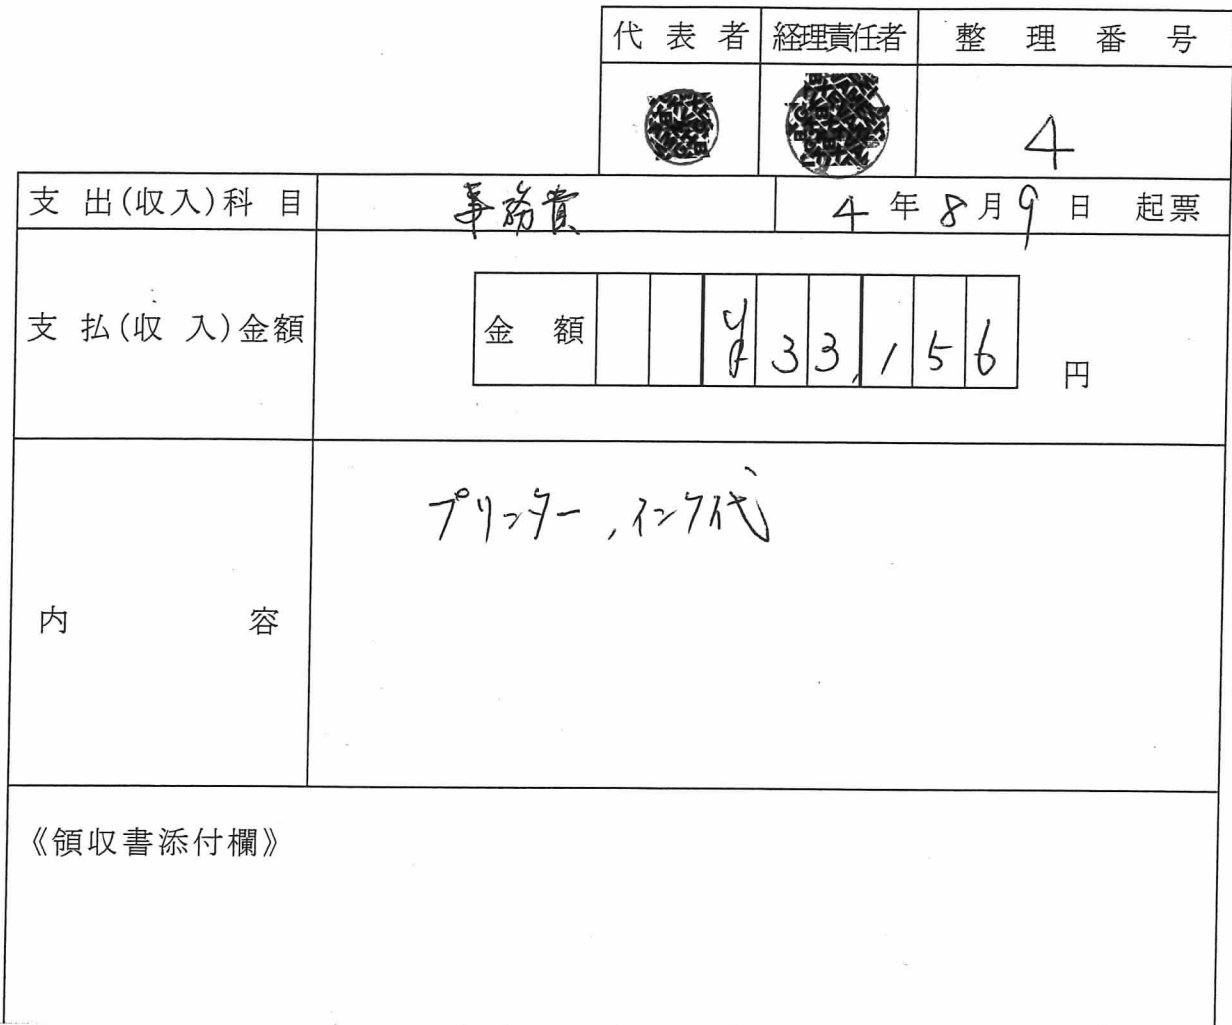 代表者 経理責任者 整理番号
4
支出(収入)科目 事務費 4年8月9日 起票
支払(収入)金額 金額 ¥33,156 円
内容 プリンター,インク代
《領収書添付欄》